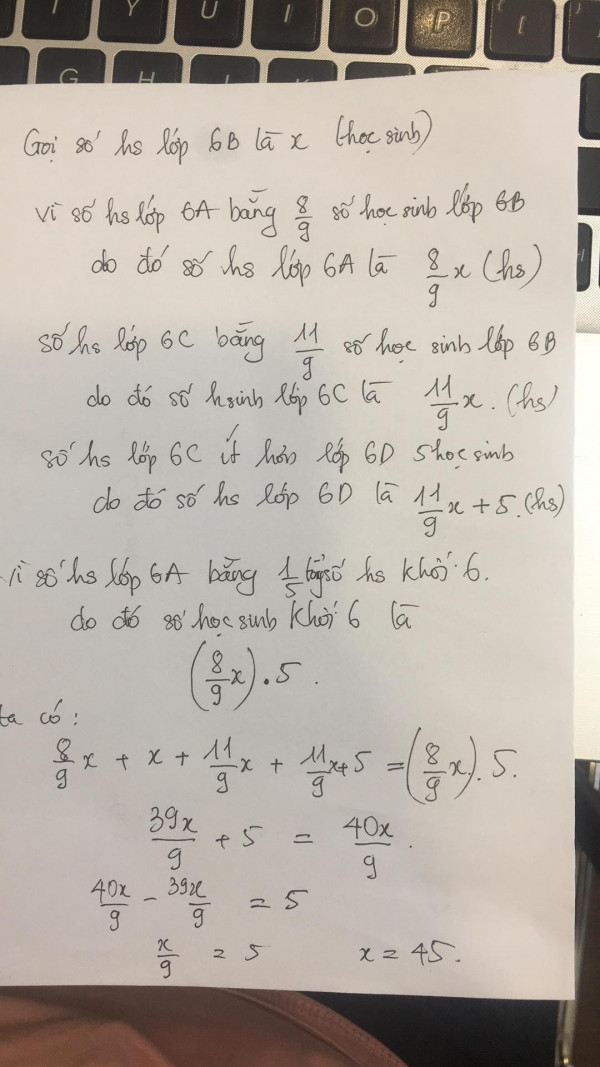 T Y U I O P [
G H
Gọi số hs lớp 6B là x (học sinh)
vì số hs lớp 6A bằng 8/9 số học sinh lớp 6B
do đó số hs lớp 6A là 8/9 x (hs)
số hs lớp 6C bằng 11/9 số học sinh lớp 6B
do đó số hsinh lớp 6C là 11/9 x. (hs)
số hs lớp 6C ít hơn lớp 6D 5 học sinh
do đó số hs lớp 6D là 11/9 x + 5. (hs)
vì số hs lớp 6A bằng 1/5 tổng số hs khối 6.
do đó số học sinh khối 6 là
(8/9 x) . 5 .
ta có :
8/9 x + x + 11/9 x + 11/9 x + 5 = (8/9 x) . 5.
39x/9 + 5 = 40x/9 .
40x/9 - 39x/9 = 5
x/9 = 5 x = 45.